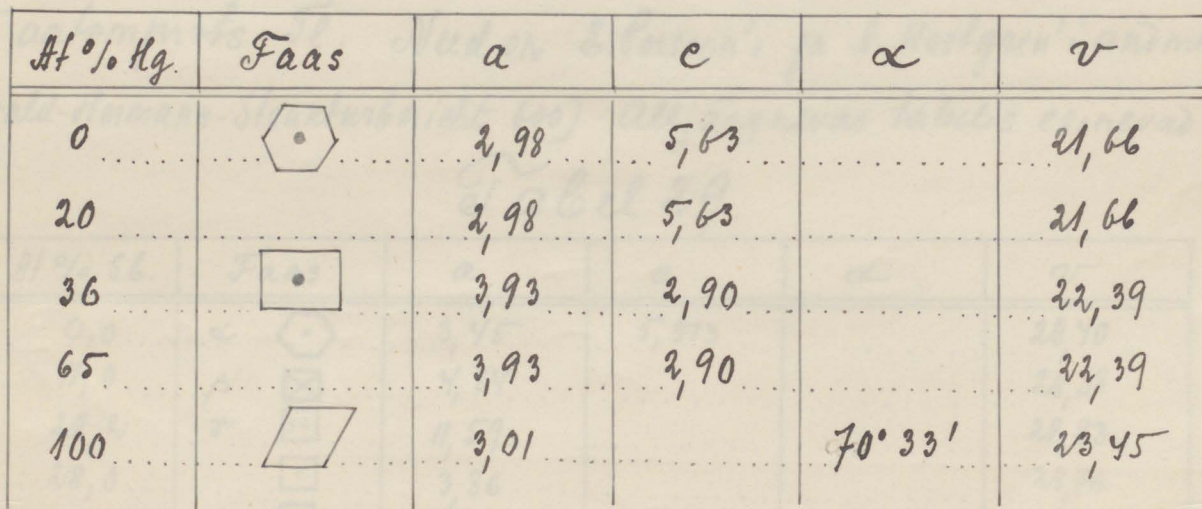 At % Hg. Faas a c α v
0 2,98 5,63 21,66
20 2,98 5,63 21,66
36 3,93 2,90 22,39
65 3,93 2,90 22,39
100 3,01 70° 33' 23,45